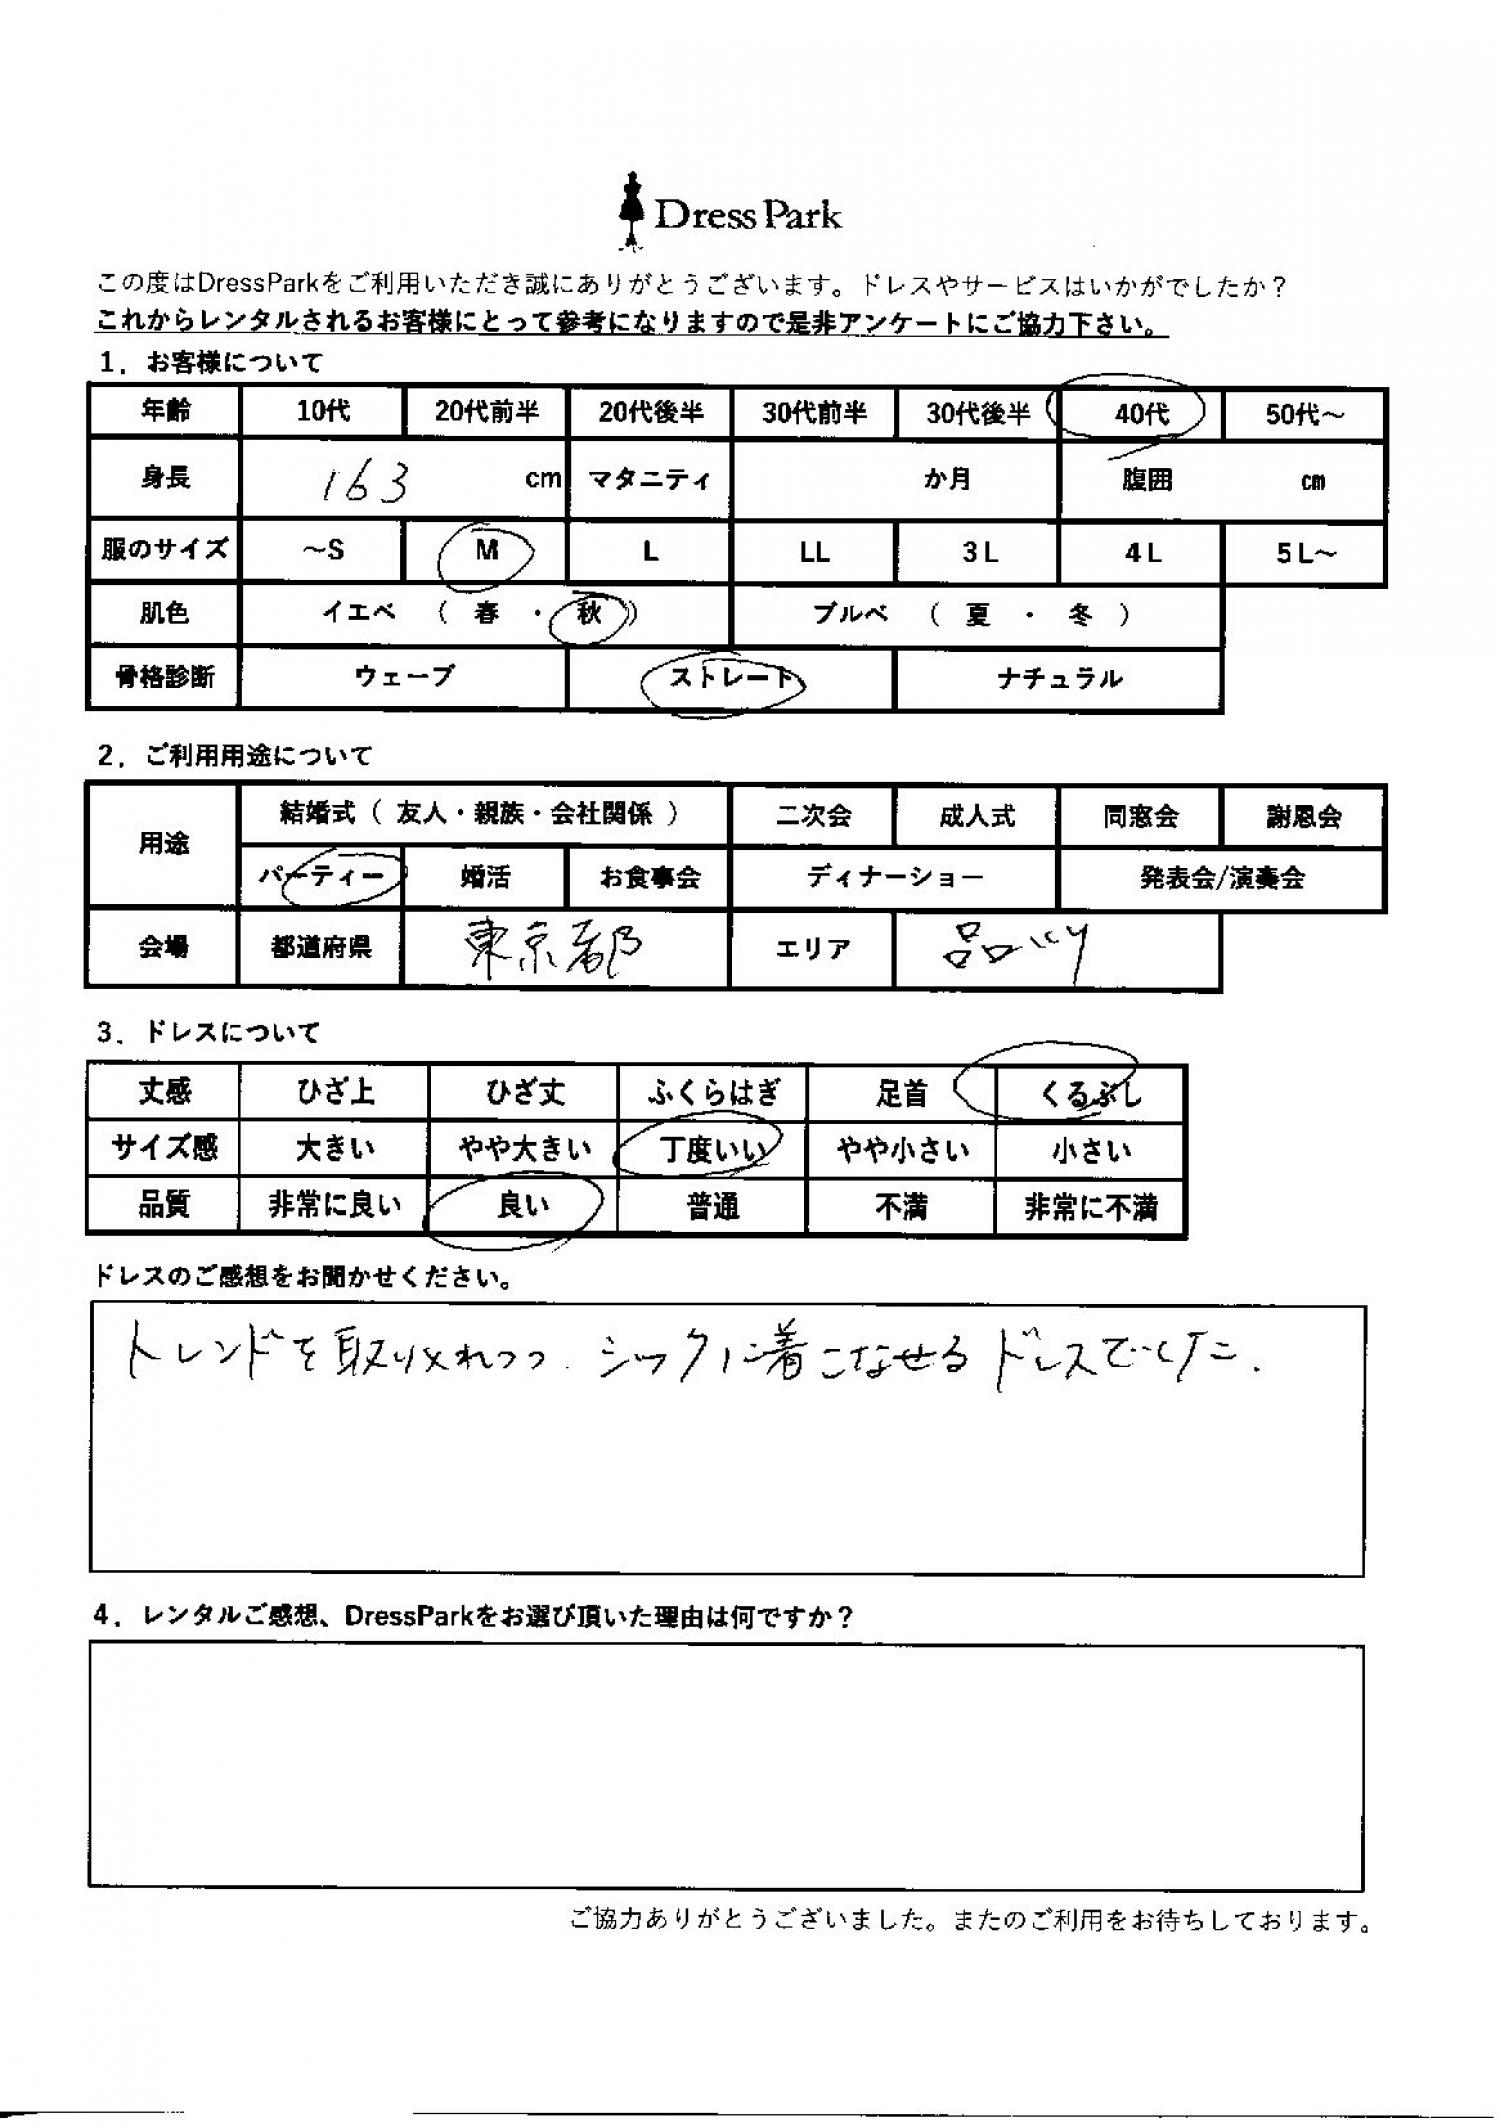 Dress Park
この度はDressParkをご利用いただき誠にありがとうございます。ドレスやサービスはいかがでしたか？
これからレンタルされるお客様にとって参考になりますので是非アンケートにご協力下さい。
1．お客様について
年齢 10代 20代前半 20代後半 30代前半 30代後半 40代 50代～
身長 163 cm マタニティ か月 腹囲 cm
服のサイズ ～S M L LL 3L 4L 5L～
肌色 イエベ （ 春 ・ 秋 ） ブルベ （ 夏 ・ 冬 ）
骨格診断 ウェーブ ストレート ナチュラル
2．ご利用用途について
用途 結婚式（ 友人・親族・会社関係 ） 二次会 成人式 同窓会 謝恩会
パーティー 婚活 お食事会 ディナーショー 発表会/演奏会
会場 都道府県 東京都 エリア 品川
3．ドレスについて
丈感 ひざ上 ひざ丈 ふくらはぎ 足首 くるぶし
サイズ感 大きい やや大きい 丁度いい やや小さい 小さい
品質 非常に良い 良い 普通 不満 非常に不満
ドレスのご感想をお聞かせください。
トレンドを取り入れつつ、シックに着こなせるドレスでした。
4．レンタルご感想、DressParkをお選び頂いた理由は何ですか？
ご協力ありがとうございました。またのご利用をお待ちしております。